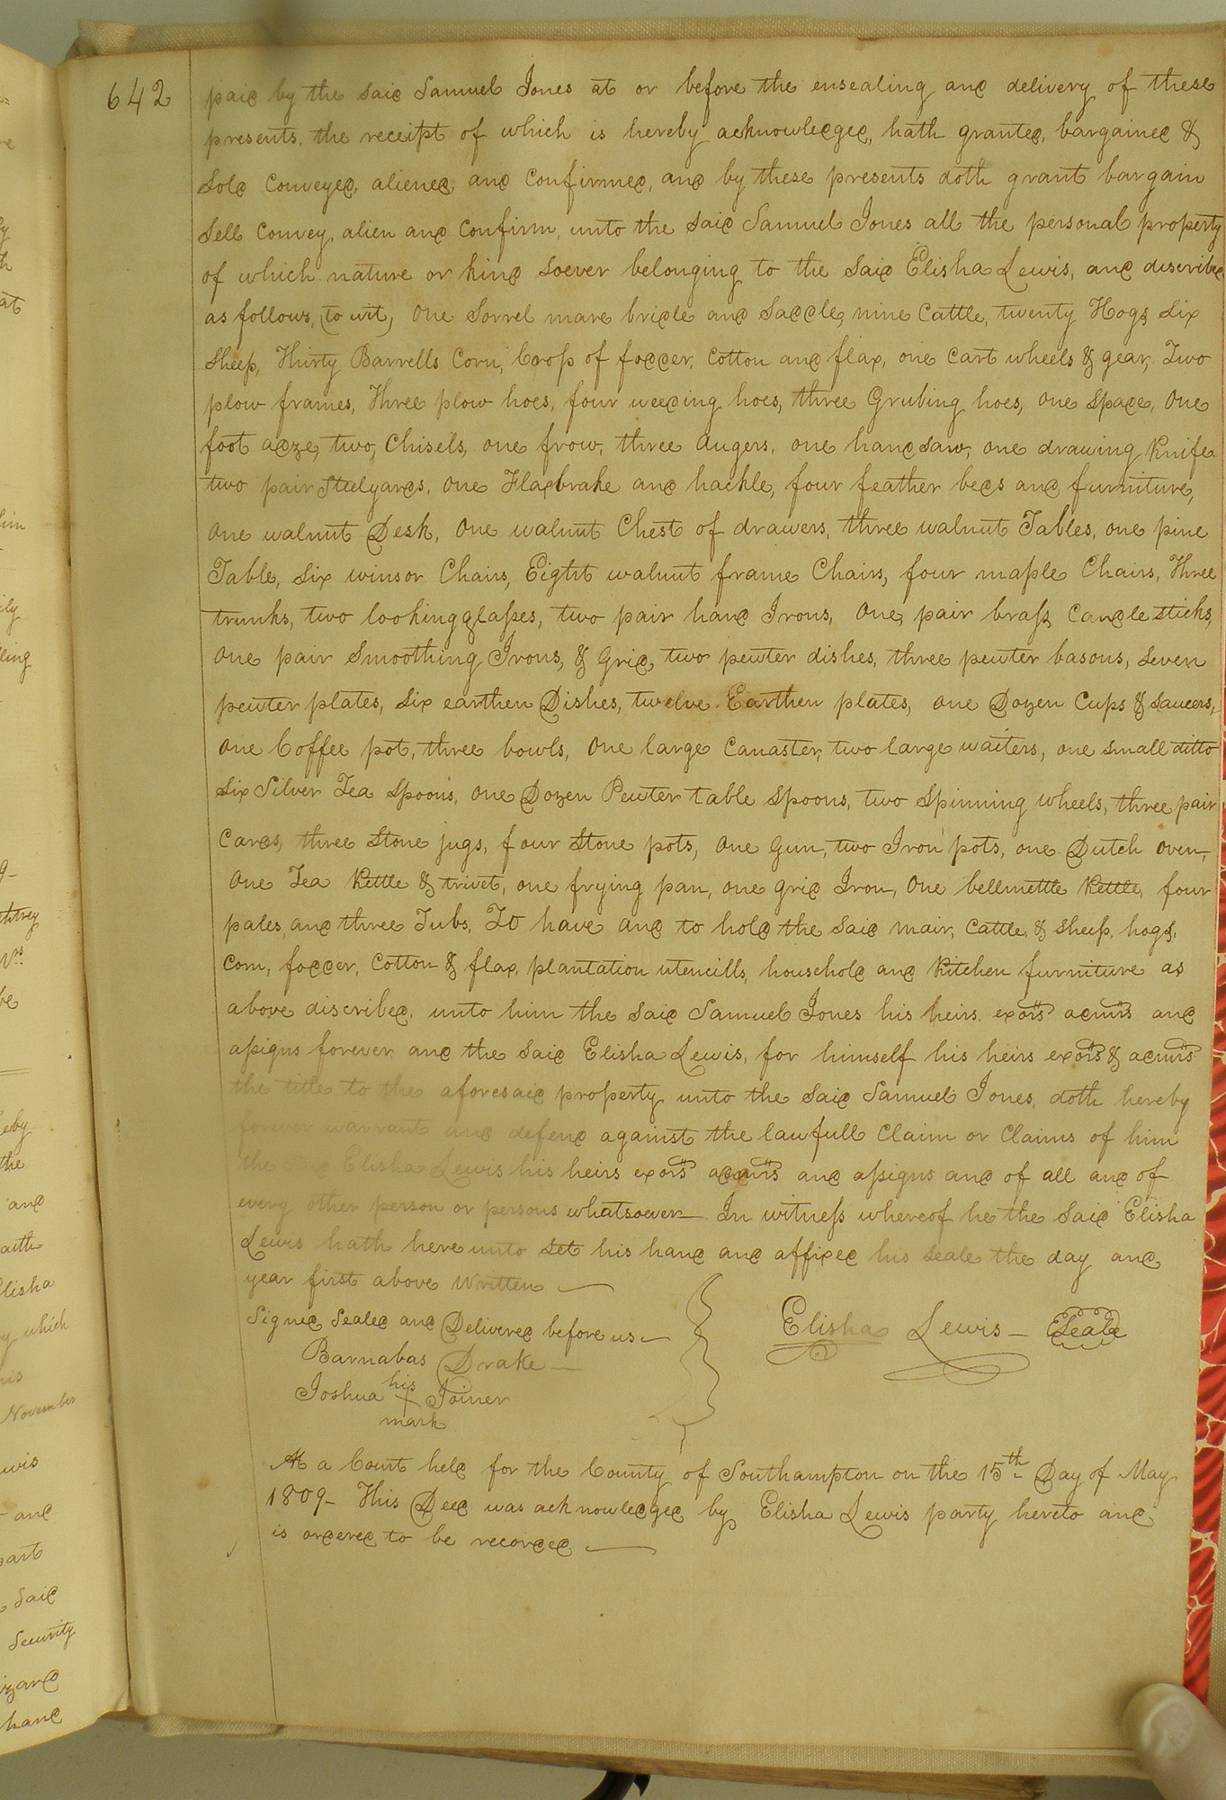 642
paid by the said Samuel Jones at or before the ensealing and delivery of these
presents, the receipt of which is hereby acknowledged, hath granted, bargained &
Sold Conveyed, aliened and Confirmed, and by these presents doth grant bargain
Sell Convey, alien and Confirm, unto the said Samuel Jones all the personal property
of which nature or kind soever belonging to the said Elisha Lewis, and discribed
as follows, (to wit) One Sorrel mare bridle and Saddle, nine Cattle, twenty Hogs, Six
Sheep, Thirty Barrells Corn, Crop of fodder, Cotton and flax, one Cart wheels & gear, Two
plow frames, Three plow hoes, four weeding hoes, three Grubing hoes, one Spade, One
foot adze, two, Chisels, one frow, three Augers, one handsaw, one drawing Knife
two pair Steelyards, One Flaxbrake and hackle, four feather beds and furniture,
One walnut Desk, One walnut Chest of drawers, three walnut Tables, one pine
Table, Six winsor Chairs, Eight walnut frame Chairs, four maple Chairs, Three
trunks, two lookingglasses, two pair hand Irons, One, pair brass Candle sticks,
One pair Smoothing Irons, & Grid, two pewter dishes, three pewter basons, Seven
pewter plates, Six earthen Dishes, twelve Earthen plates, one Dozen Cups & Saucers,
One Coffee pot, three bowls, One large Canaster, two large waiters, one small ditto
Six Silver Tea Spoons, One Dozen Pewter table Spoons, two Spinning wheels, three pair
Cards, three Stone jugs, four Stone pots, One Gun, two Iron pots, one Dutch oven,
One Tea Kettle & trivet, one frying pan, one grid Iron, One bellmettle Kettle, four
pales, and three Tubs, To have and to hold the said mair, Cattle, & Sheep, hogs,
Corn, fodder, Cotton & flax, plantation utencills, household and Kitchen furniture as
above discribed, unto him the said Samuel Jones his heirs exors admrs and
assigns forever and the said Elisha Lewis, for himself his heirs exors & admrs
the title to the aforesaid property unto the said Samuel Jones, doth hereby
forever warrant and defend against the lawfull Claim or Claims of him
the Elisha Lewis his heirs exors admrs and assigns and of all and of
every other person or persons whatsoever In witness whereof he the said Elisha
Lewis hath here unto Set his hand and affixed his Seale the day and
year first above written
Signed Sealed and Delivered before us
Elisha Lewis Seale
Barnabas Drake
Joshua his + mark Joiner
At a Court held for the County of Southampton on the 15th Day of May
1809 This Deed was acknowledged by Elisha Lewis party hereto and
is ordered to be recorded
at
him
ily
ling
be
the
and
Elisha
which
November
and
part
Said
Security
hand